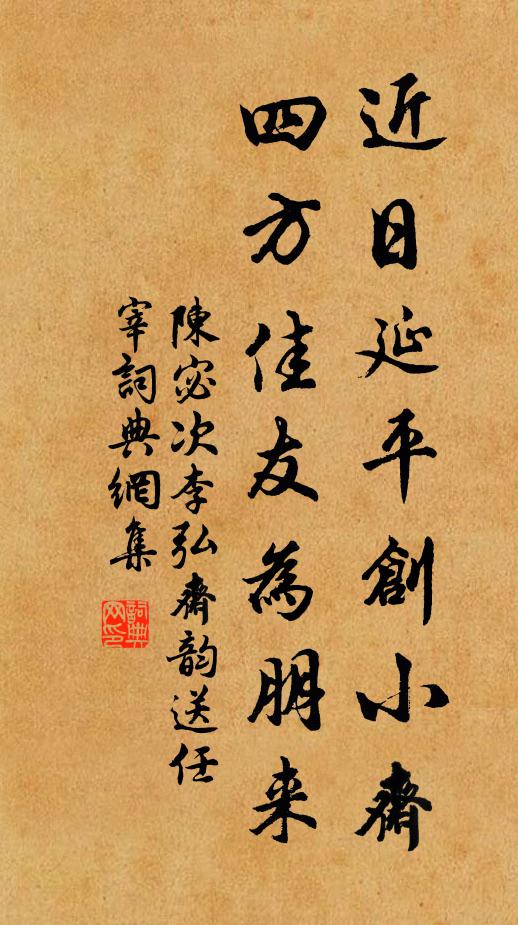 近日延平創小齋
四方佳友為朋来
陳宓次李弘齋韵送任
宰詞典網集
詞典网印